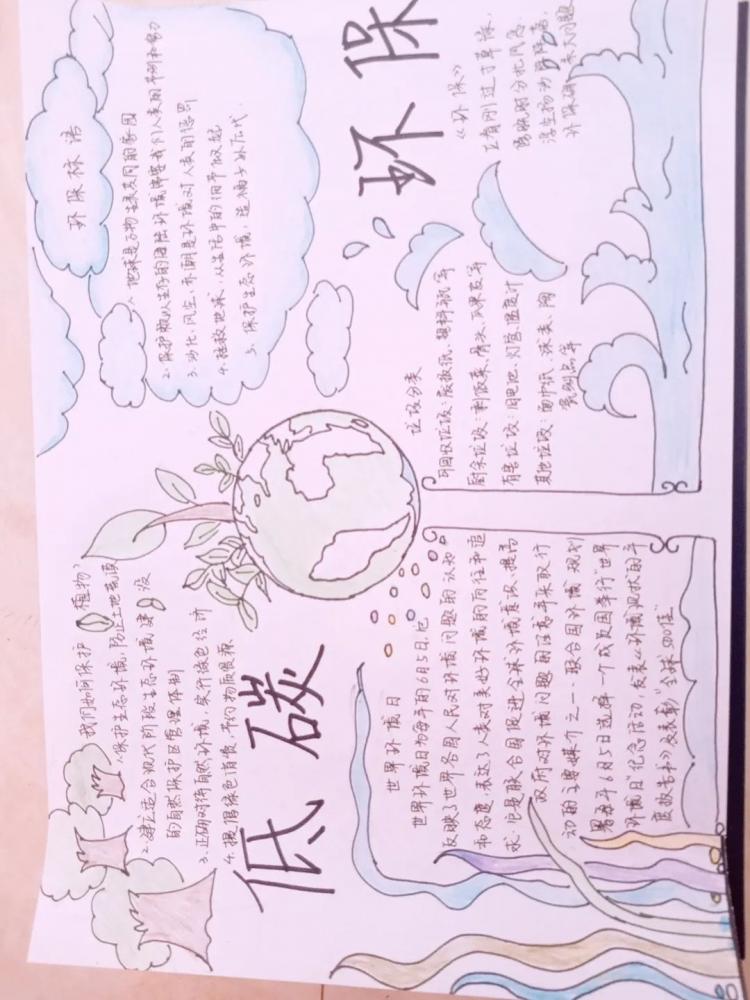 低碳 环保
我们如何保护(植物)
1.保护生态环境,防止土地荒漠
2.建立适合现代阶段生态环境建设
的自然保护区管理体制
3.正确对待自然环境,实行绿色经济
4.提倡绿色消费,节约物质资源
环保林语
1、地球是万物的家园
2.保护赖以生存的海陆环境需要我们人类和努力
3.沙化、风尘、赤潮是环境对人类的惩罚
4.拯救地球,从生活中的细节做起
5、保护生态环境,造福子孙后代.
世界环境日
世界环境日为每年的6月5日,它
反映了世界各国人民对环境问题的认知
和态度,表达了人类对美好环境的向往和追
求.它是联合国促进全球环境意识、提高
政府对环境问题的注意并采取行
动的主要媒介之一.联合国环境规划
署每年6月5日选择一个成员国举行"世界
环境日"纪念活动,发表《环境现状的年
度报告书》及表彰"全球500佳"
垃圾分类
可回收垃圾:废报纸、塑料瓶等
厨余垃圾:剩饭菜、骨头、瓜果皮等
有害垃圾:旧电池、灯管、温度计
其他垃圾:面巾纸、
等
《环保》
为
环保